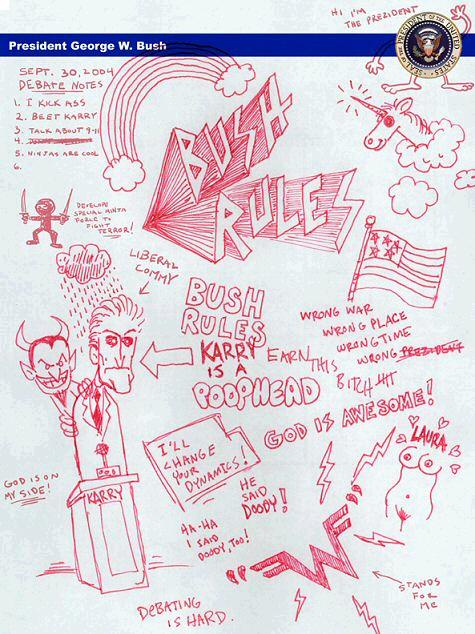 HI I'M
THE PREZIDENT
President George W. Bush
SEAL OF THE PRESIDENT OF THE UNITED STATES
SEPT. 30, 2004
DEBATE NOTES
1. I KICK ASS
2. BEET KARRY
3. TALK ABOUT 9-11
4.
5. NINJAS ARE COOL
6.
BUSH
RULES
DEVELOPE
SPECIAL NINJA
FORCE TO
FIGHT
TERROR!
LIBERAL
COMMY
BUSH
RULES
KARRY
IS A
POOPHEAD
WRONG WAR
WRONG PLACE
WRONG TIME
WRONG PREZIDENT
EARN THIS
BITCH!!!
GOD IS AWESOME!
LAURA
I'LL
CHANGE
YOUR
DYNAMICS!
HE
SAID
DOODY!
GOD IS ON
MY SIDE!
KARRY
HA-HA
I SAID
DOODY, TOO!
"W"
STANDS
FOR
ME
DEBATING
IS HARD.